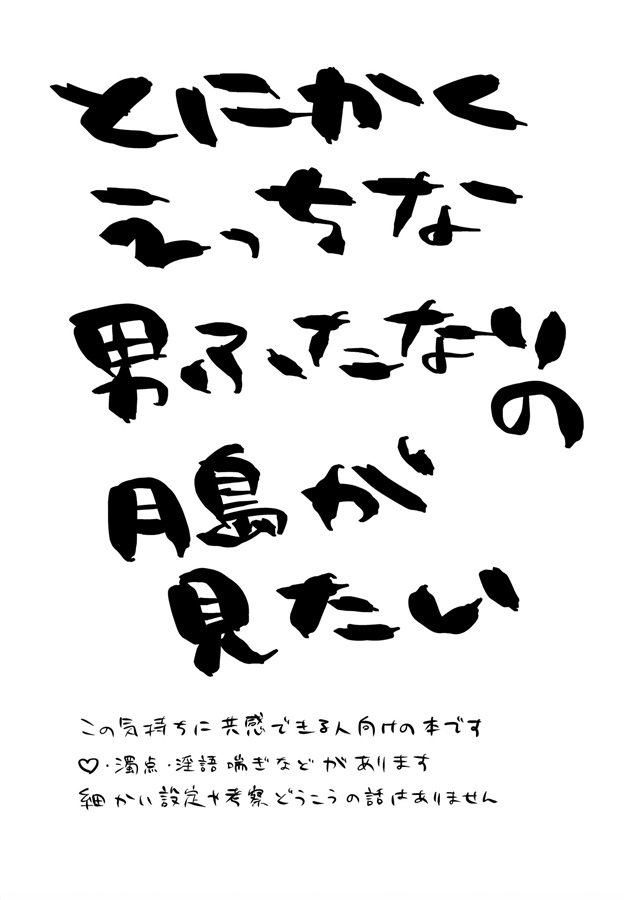 とにかく
えっちな
男ふたなりの
月島が
見たい
この気持ちに共感できる人向けの本です
♡・濁点・淫語喘ぎなどがあります
細かい設定や考察どうこうの話はありません